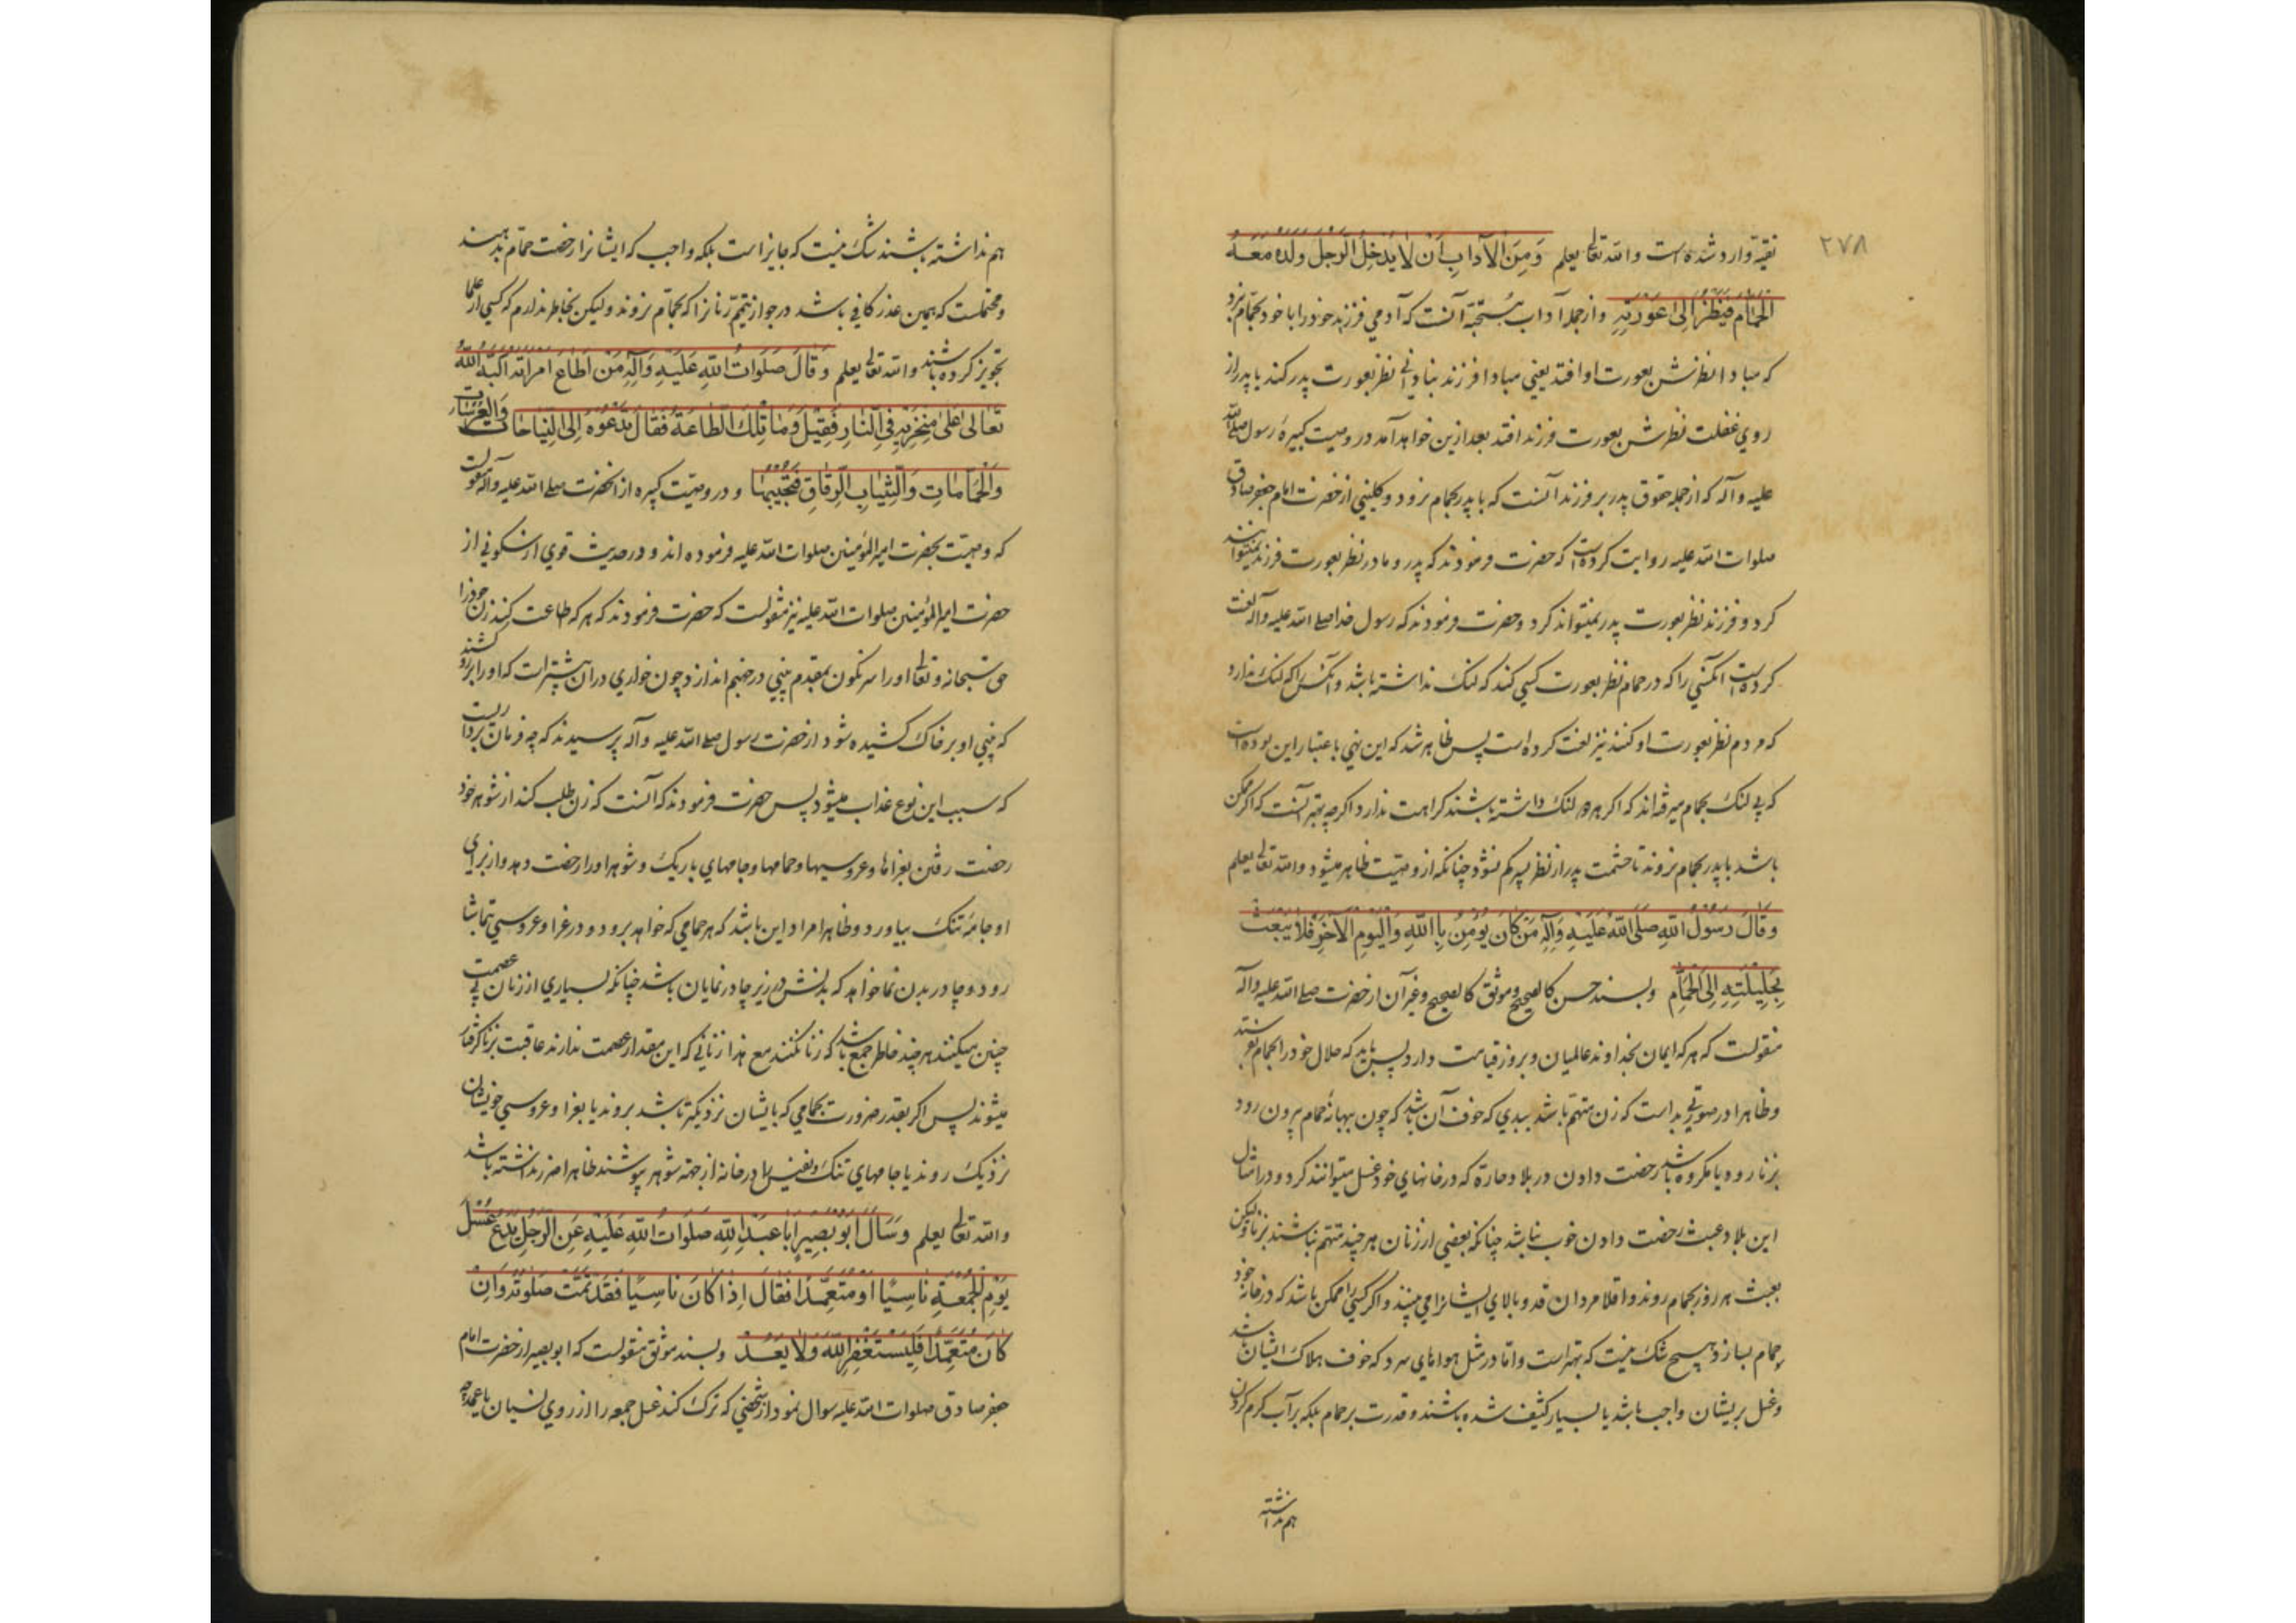 ۲۷۸
تقیّة وارد شده است والله تعالی یعلم وَمِنَ الْآدابِ اَنْ لایَدْخُلَ الرَّجُلُ وَلَدَهُ مَعَهُ
الْحَمّامَ فَیَنْظُرُ اِلیٰ عَوْرَتِهِ و از جمله آداب مستحبّه آنست که آدمی فرزند خود را با خود بحمّام نبرد
که مبادا نظرش بعورت او افتد یعنی مبادا فرزند بنادانی نظر بعورت پدر کند یا پدر از
روی غفلت نظرش بعورت فرزند افتد بعد ازین خواهد آمد در وصیت کبیره رسول صلی الله
علیه وآله که از جمله حقوق پدر بر فرزند آنست که با پدر بحمام نرود و کلینی از حضرت امام جعفر صادق
صلوات الله علیه روایت کرده است که حضرت فرمودند که پدر و مادر نظر بعورت فرزند نمیتوانند
کرد و فرزند نظر بعورت پدر نمیتواند کرد و حضرت فرمودند که رسول خدا صلی الله علیه وآله لعنت
کرده است آنکسی را که در حمام نظر بعورت کسی کند که لنک نداشته باشد و آنکس را که لنک ندارد
که مردم نظر بعورت او کنند نیز لعنت کرده است پس ظاهر شد که این نهی باعتبار این بوده است
که بی لنک بحمام میرفته‌اند که اکر هر دو لنک داشته باشند کراهت ندارد اکرچه بهتر آنست که اکر ممکن
باشد با پدر بحمام نروند تا حشمت پدر از نظر پسر کم نشود چنانکه از وصیت ظاهر میشود والله تعالی یعلم
وَقالَ رَسُولُ اللهِ صَلَّی اللهُ عَلَیْهِ وَآلِهِ مَنْ کانَ یُؤْمِنُ بِاللهِ وَالْیَوْمِ الْآخِرِ فَلا یَبْعَثْ
بِحَلیلَتِهِ اِلَی الْحَمّامِ و بسند حسن کالصحیح و موثق کالصحیح و غیر آن از حضرت صلی الله علیه وآله
منقولست که هر که ایمان بخداوند عالمیان و بروز قیامت دارد پس باید که حلال خود را بحمام نفرستد
و ظاهرا در صورتی بد است که زن متهم باشد ببدی که خوف آن باشد که چون ببهانهٔ حمام بیرون رود
بزنا رود یا مکروه باشد رخصت دادن در بلاد حارّة که در خانهای خود غسل میتوانند کرد و در امثال
این بلاد عبث رخصت دادن خوب نباشد چنانکه بعضی از زنان هر چند متهم نباشند بزنا ولیکن
بعبث هر روز بحمام روند و اقلا مردان قد و بالای ایشانرا می‌بینند و اکر کسی را ممکن باشد که در خانه خود
حمام بسازد هیچ شک نیست که بهتر است و اما در مثل هواهای سرد که خوف هلاک ایشان باشد
و غسل بریشان واجب باشد یا بسیار کثیف شده باشند و قدرت بر حمام بلکه بر آب کرم کردن
هم نداشته
هم نداشته باشند شک نیست که جایز است بلکه واجب که ایشانرا رخصت حمّام بدهند
و محتملست که همین عذر کافی باشد در جواز تیمّم زنانرا که بحمّام نروند ولیکن بخاطر ندارم که کسی از علما
تجویز کرده باشند والله تعالی یعلم وَقالَ صَلَواتُ اللهِ عَلَیْهِ وَآلِهِ مَنْ اَطاعَ امْرَاَتَهُ اَکَبَّهُ اللهُ
تَعالیٰ عَلیٰ مَنْخِرَیْهِ فِی النّارِ فَقیلَ وَما تِلْکَ الطّاعَةُ فَقالَ تَدْعُوهُ اِلَی النِّیاحاتِ وَالْعُرُساتِ
وَالْحَمّاماتِ وَالثِّیابِ الرِّقاقِ فَیُجیبُها و در وصیّت کبیره از آنحضرت صلی الله علیه وآله منقولست
که وصیّت بحضرت امیرالمؤمنین صلوات الله علیه فرموده‌اند و در حدیث قوی از سکونی از
حضرت امیرالمؤمنین صلوات الله علیه نیز منقولست که حضرت فرمودند که هر که طاعت کند زن خود را
حق سبحانه و تعالی او را سرنکون بمقدم بینی در جهنم اندازد چون خواری در آن بیشتر است که او را برو کشند
که بینی او بر خاک کشیده شود از حضرت رسول صلی الله علیه وآله پرسیدند که چه فرمان برداریست
که سبب این نوع عذاب میشود پس حضرت فرمودند که آنست که زن طلب کند از شوهر خود
رخصت رفتن بعزاها و عروسیها و حمامها و جامهای باریک و شوهر او را رخصت دهد و از برای
او جامهٔ تنک بیاورد و ظاهرا مراد این باشد که هر حمامی که خواهد برود و در عزا و عروسی تماشا
رود و چادر بدن نما خواهد که بدنش در زیر چادر نمایان باشد چنانکه بسیاری از زنان بی عصمت
چنین میکنند هر چند خاطر جمع باشد که زنا نکنند مع هذا زنانی که این مقدار عصمت ندارند عاقبت بزنا کرفتار
میشوند پس اکر بقدر ضرورت بحمامی که بایشان نزدیکتر باشد بروند یا بعزا و عروسی خویشان
نزدیک روند یا جامهای تنک و نفیس را در خانه از جهة شوهر بپوشند ظاهرا ضرر نداشته باشد
والله تعالی یعلم وَسَاَلَ اَبُو بَصیرٍ اَبا عَبْدِاللهِ صَلَواتُ اللهِ عَلَیْهِ عَنِ الرَّجُلِ یَدَعُ غُسْلَ
یَوْمِ الْجُمُعَةِ ناسِیًا اَوْ مُتَعَمِّدًا فَقالَ اِذا کانَ ناسِیًا فَقَدْ تَمَّتْ صَلوتُهُ وَاِنْ
کانَ مُتَعَمِّدًا فَلْیَسْتَغْفِرِ اللهَ وَلا یَعُدْ و بسند موثق منقولست که ابو بصیر از حضرت امام
جعفر صادق صلوات الله علیه سوال نمود از شخصی که ترک کند غسل جمعه را از روی نسیان یا عمد چه